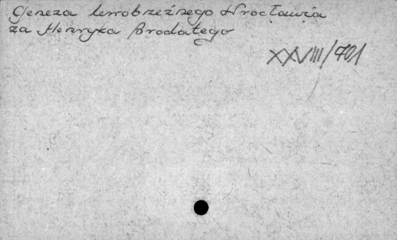 Geneza lewobrzeżnego Wrocławia
za Henryka Brodatego
XXVIII/701